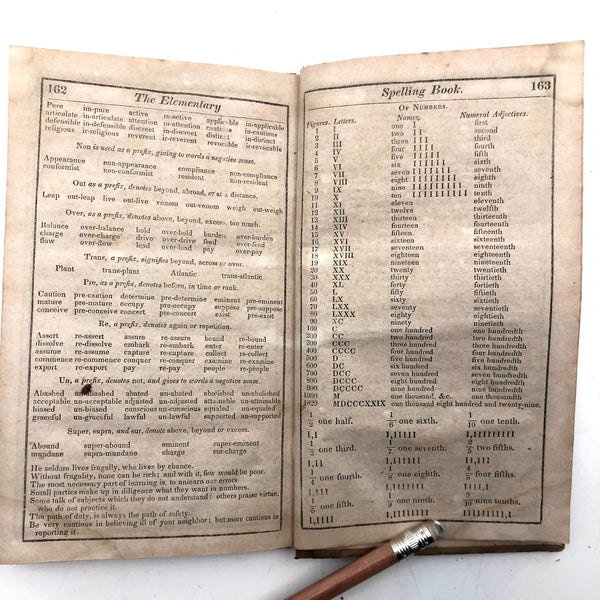 162
The Elementary
Pure im-pure active in-active applicable in-applicable
articulate in-articulate attention in-attention cautious in-cautious
defensible in-defensible discreet in-discreet distinct in-distinct
religious ir-religious reverent ir-reverent revocable ir-revocable
Non is used as a prefix, giving to words a negative sense.
Appearance non-appearance compliance non-compliance
conformist non-conformist resident non-resident
Out as a prefix, denotes beyond, abroad, or at a distance.
Leap out-leap live out-live venom out-venom weigh out-weigh
Over, as a prefix, denotes above, beyond, excess, too much.
Balance over-balance bold over-bold burden over-burden
charge over-charge drive over-drive feed over-feed
flow over-flow lead over-lead pay over-pay
Trans, a prefix, signifies beyond, across or over.
Plant trans-plant Atlantic trans-atlantic
Pre, as a prefix, denotes before, in time or rank.
Caution pre-caution determine pre-determine eminent pre-eminent
mature pre-mature occupy pre-occupy suppose pre-suppose
conceive pre-conceive concert pre-concert exist pre-exist
Re, a prefix, denotes again or repetition.
Assert re-assert assure re-assure bound re-bound
dissolve re-dissolve embark re-embark enter re-enter
assume re-assume capture re-capture collect re-collect
commence re-commence conquer re-conquer examine re-examine
export re-export pay re-pay people re-people
Un, a prefix, denotes not, and gives to words a negative sense.
Abashed un-abashed abated un-abated abolished un-abolished
acceptable un-acceptable adjusted un-adjusted attainable un-attainable
biassed un-biassed conscious un-conscious equaled un-equaled
graceful un-graceful lawful un-lawful supported un-supported
Super, supra, and sur, denote above, beyond or excess.
Abound super-abound eminent super-eminent
mundane supra-mundane charge sur-charge
He seldom lives frugally, who lives by chance.
Without frugality, none can be rich; and with it, few would be poor.
The most necessary part of learning is, to unlearn our errors.
Small parties make up in diligence what they want in numbers.
Some talk of subjects which they do not understand; others praise virtue,
who do not practice it.
The path of duty, is always the path of safety.
Be very cautious in believing ill of your neighbor; but more cautious in
reporting it.
Spelling Book.
163
Of Numbers.
Figures. Letters. Names. Numeral Adjectives.
1 I one I first
2 II two II second
3 III three III third
4 IV four IIII fourth
5 V five IIIII fifth
6 VI six IIIIII sixth
7 VII seven IIIIIII seventh
8 VIII eight IIIIIIII eighth
9 IX nine IIIIIIIII ninth
10 X ten IIIIIIIIII tenth
11 XI eleven eleventh
12 XII twelve twelfth
13 XIII thirteen thirteenth
14 XIV fourteen fourteenth
15 XV fifteen fifteenth
16 XVI sixteen sixteenth
17 XVII seventeen seventeenth
18 XVIII eighteen eighteenth
19 XIX nineteen nineteenth
20 XX twenty twentieth
30 XXX thirty thirtieth
40 XL forty fortieth
50 L fifty fiftieth
60 LX sixty sixtieth
70 LXX seventy seventieth
80 LXXX eighty eightieth
90 XC ninety ninetieth
100 C one hundred one hundredth
200 CC two hundred two hundredth
300 CCC three hundred three hundredth
400 CCCC four hundred four hundredth
500 D five hundred five hundredth
600 DC six hundred six hundredth
700 DCC seven hundred seven hundredth
800 DCCC eight hundred eight hundredth
900 DCCCC nine hundred nine hundredth
1000 M one thousand, &c. one thousandth
1829 MDCCCXXIX one thousand eight hundred and twenty-nine.
1/2 one half. 1/6 one sixth. 1/10 one tenth.
1/3 one third. 1/7 one seventh. 2/5 two fifths.
1/4 one fourth. 1/8 one eighth. 4/5 four fifths.
1/5 one fifth. 1/9 one ninth. 9/10 nine tenths.